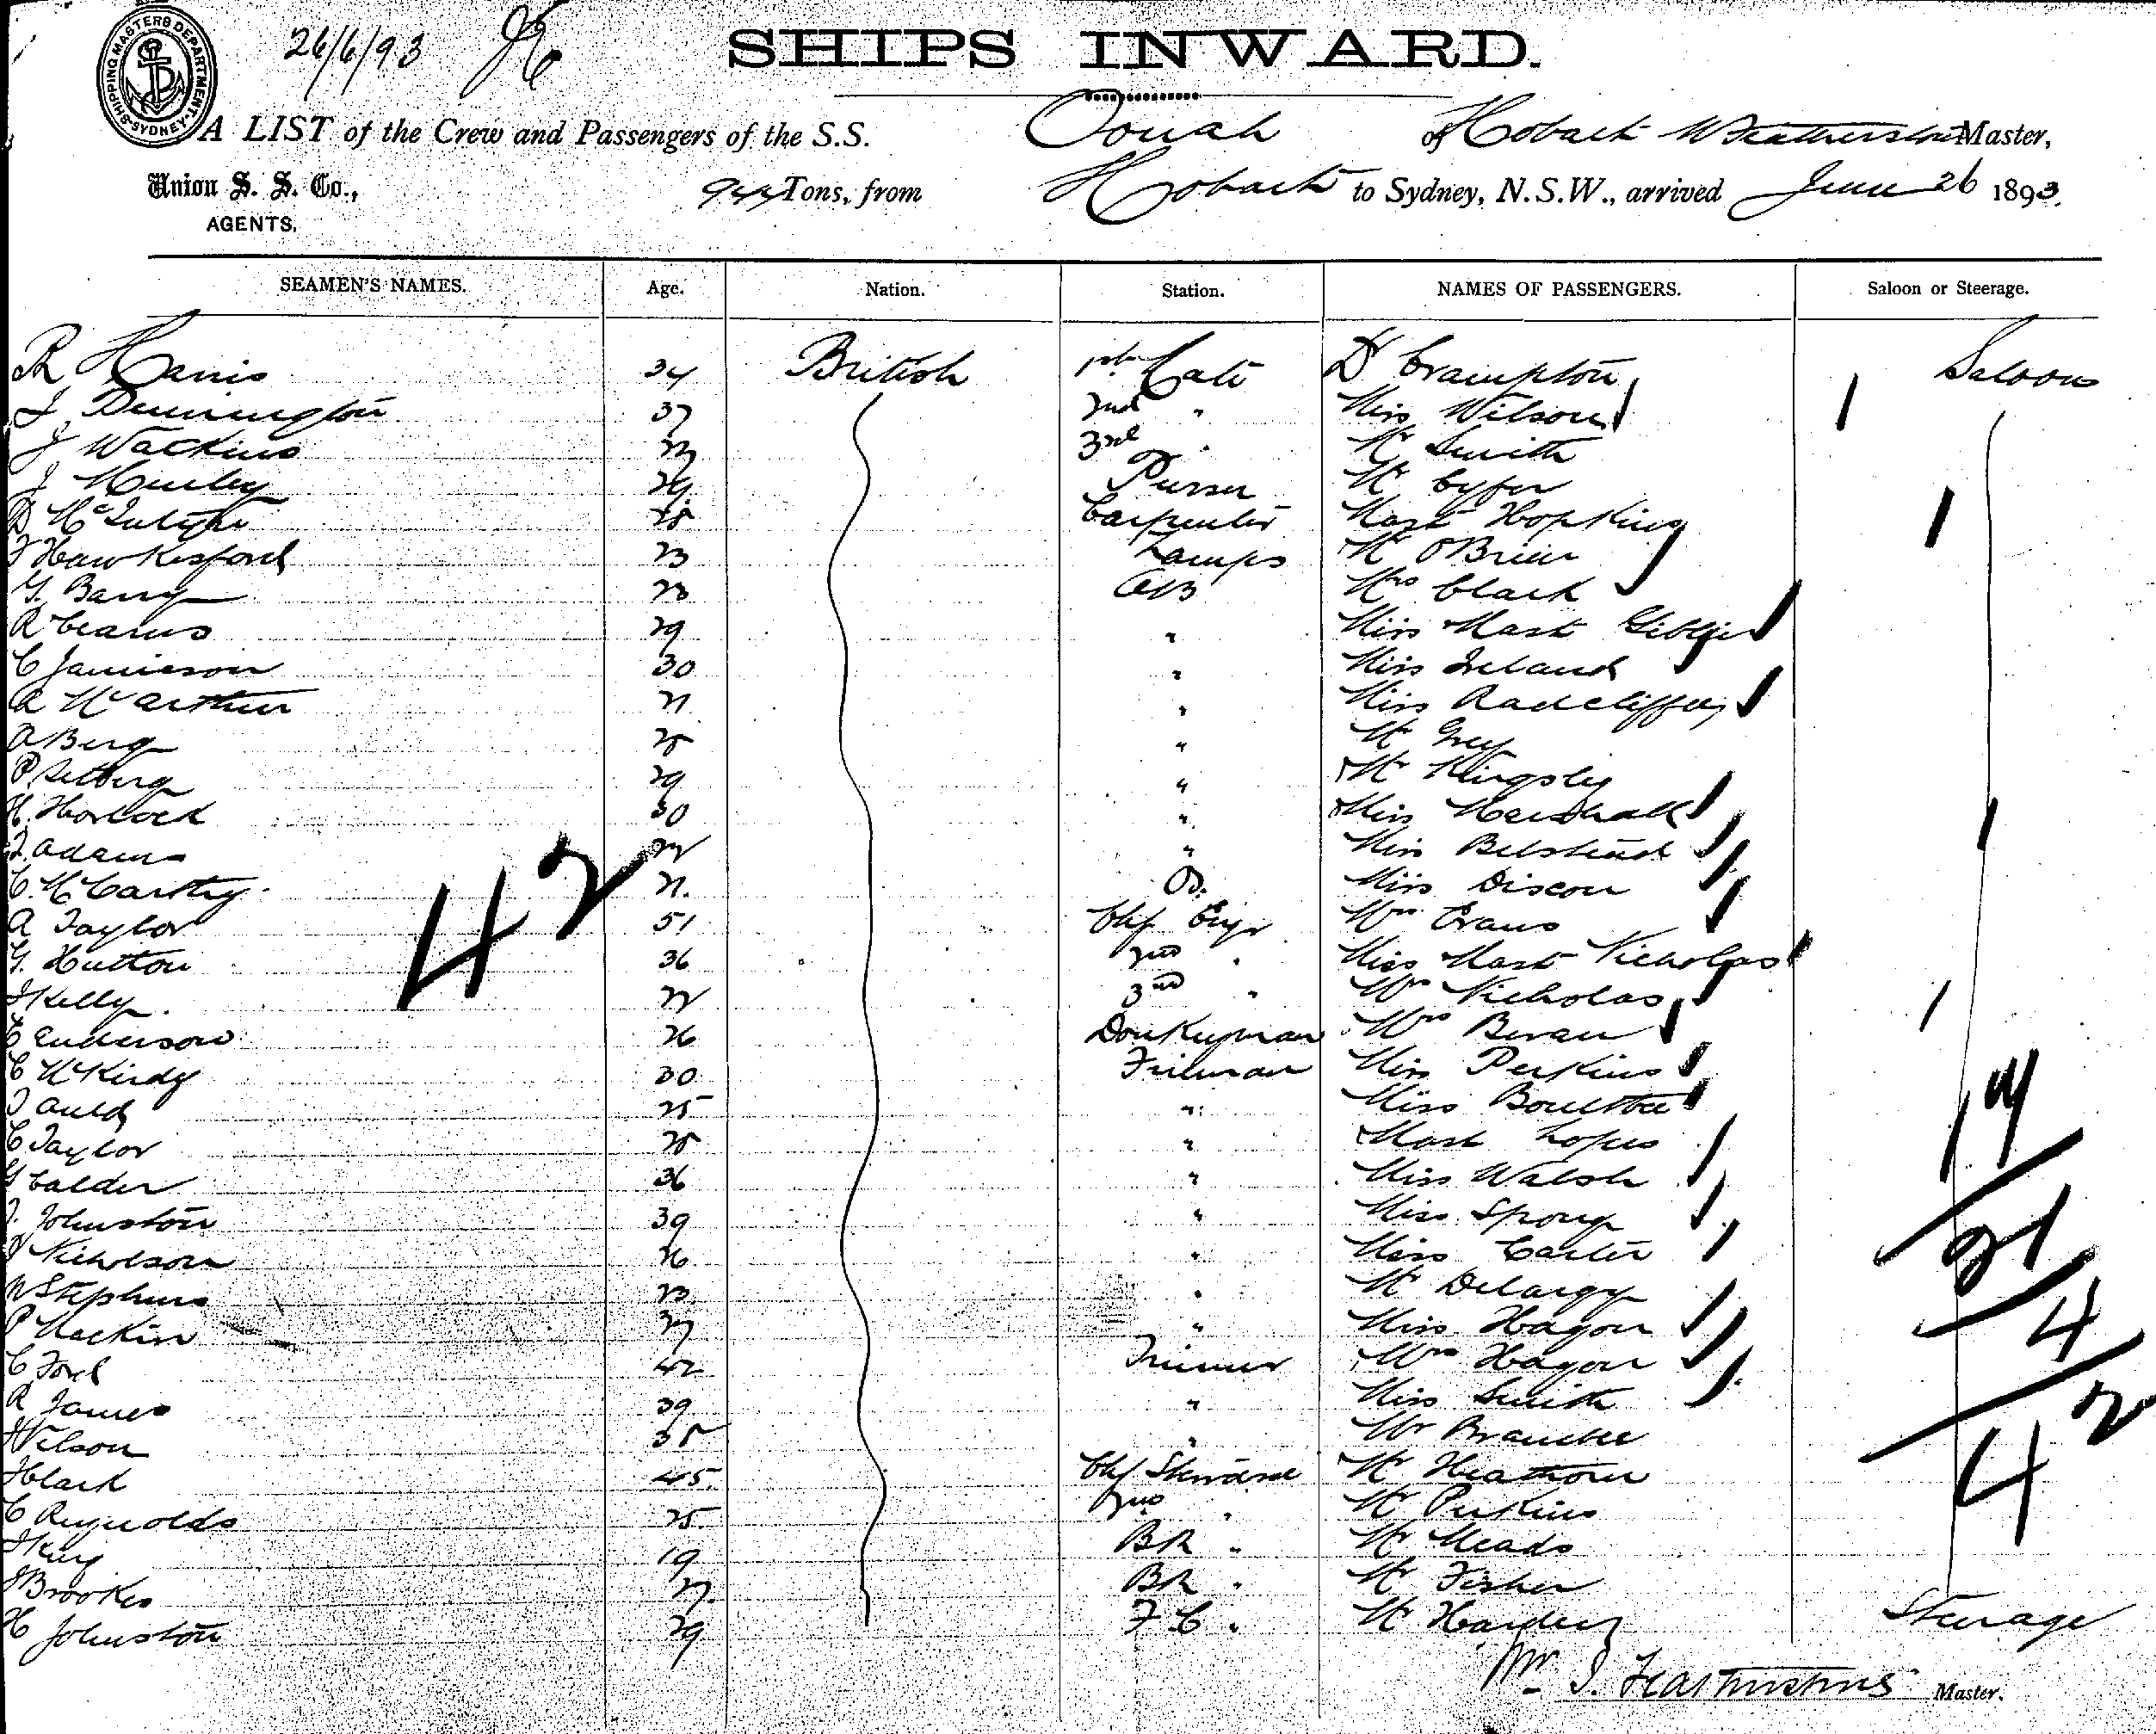 SHIPPING MASTERS DEPARTMENT SYDNEY
26/6/93
SHIPS INWARD.
A LIST of the Crew and Passengers of the S.S. Oonah of Hobart W Featherstone Master,
Union S. S. Co., AGENTS,
944 Tons, from Hobart to Sydney, N.S.W., arrived June 26 1893.
SEAMEN'S NAMES. Age. Nation. Station. NAMES OF PASSENGERS. Saloon or Steerage.
R Harris 34 British 1st Mate Dr Crampton Saloon
J Dennington 37 2nd " Miss Wilson 1
J Watkins 3rd " Mr Smith
J Hurley 29 Purser Mr
D McIntyre 28 Carpenter Mast Hopkins 1
Hawkesford 23 Lamps Mr O'Brien
G. Barry 23 AB Mrs Clark
R Cearns 29 " Miss Mast
C Jamieson 30 " Miss Ireland
A McArthur 21 " Miss Radcliffe
A Berg 28 " Mr Grey
P Setberg 29 " Mr Kingsley
H. Horlock 30 " Miss Marshall
Adams 22 " Miss Belstead 1
C. McCarthy 21. OS. Miss
A Taylor 51 Chf Engr Mrs Evans
G. Hutton 36 2nd " Miss Mast Nicholas
Kelly 22 3rd " Mrs Nicholas
E Anderson 26 Donkeyman Mrs Bevan 1
C McKirdy 30 Fireman Miss Perkins
Auld 25 " Miss Boultbee 17
C Taylor 28 " Mast
G Calder 36 " Miss Walsh
J. Johnston 39 " Miss Spong
Nicholson 26 " Miss Carter 21
W Stephens 23 " Mr Delargy
P Mackin 27 " Miss Hagon 4
C Ford 42 Trimmer Mrs Hagon
R James 39 " Miss Smith
Wilson 35 " Mr 42
Clark 45. Chf Steward Mr
C Reynolds 25 2nd " Mr Perkins
King 19 BR " Mr Meads
Brookes 27. BR " Mr Fisher
H Johnston 29 F.C. " Mr Steerage
42
Master.